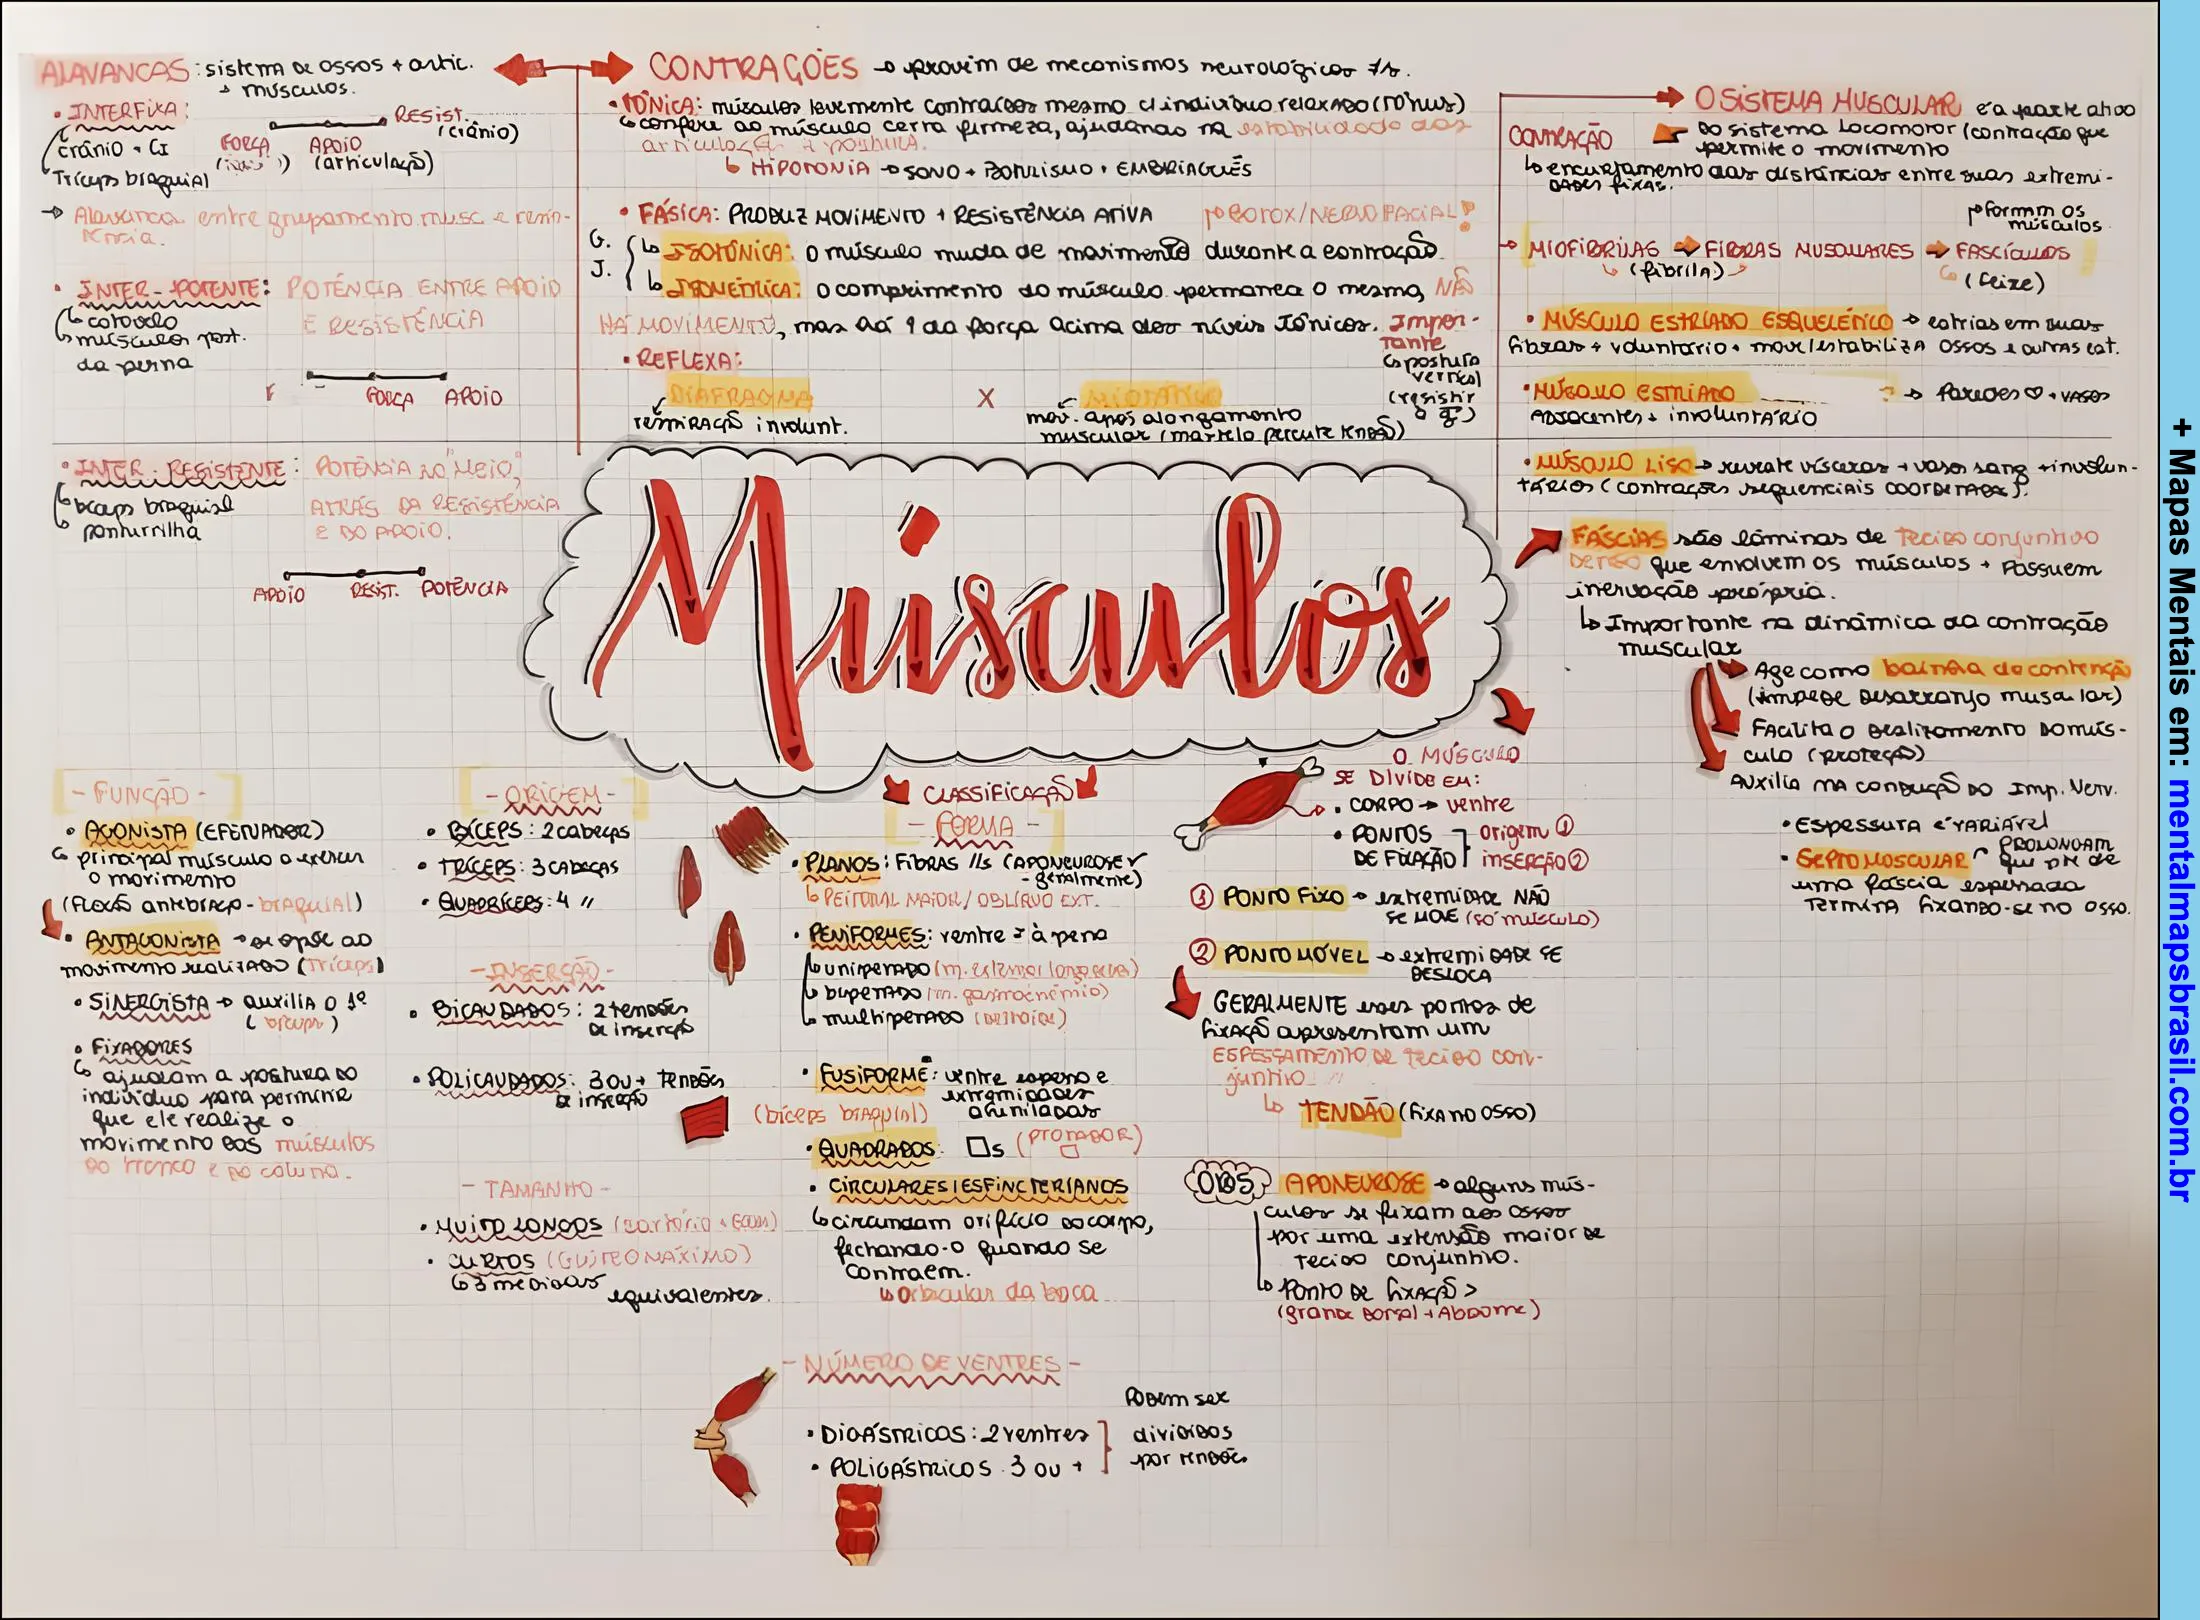 ALAVANCAS: sistema de ossos + artic.
+ músculos.
• INTERFIXA:
crânio + C1
Tríceps braquial
FORÇA
APOIO
(articulação)
RESIST.
(crânio)
→ Alavanca entre grupamento musc. e resis-
tência.
• INTER-POTENTE: POTÊNCIA ENTRE APOIO
E RESISTÊNCIA
cotovelo
músculos post.
da perna
FORÇA APOIO
• INTER-RESISTENTE: POTÊNCIA NO "MEIO",
ATRÁS DA RESISTÊNCIA
E DO APOIO.
bíceps braquial
panturrilha
APOIO RESIST. POTÊNCIA
CONTRAÇÕES → provém de mecanismos neurológicos ≠s.
• TÔNICA: músculos levemente contraídos mesmo c/ indivíduo relaxado (tônus)
confere ao músculo certa firmeza, ajudando na estabilidade das
articulações e postura.
HIPOTONIA → SONO + BOTULISMO + EMBRIAGUÊS
• FÁSICA: PRODUZ MOVIMENTO + RESISTÊNCIA ATIVA
BOTOX/NERVO FACIAL!
G.
J.
ISOTÔNICA: o músculo muda de movimento durante a contração.
ISOMÉTRICA: o comprimento do músculo permanece o mesmo, NÃO
HÁ MOVIMENTO, mas há ↑ da força acima dos níveis tônicos. Impor-
tante
postura
vertical
(resistir
a g)
• REFLEXA:
DIAFRAGMA
respiração involunt.
X
MIOTÁTICO
mov. após alongamento
muscular (martelo percute tendão)
O SISTEMA MUSCULAR é a parte ativa
do sistema locomotor (contração que
permite o movimento
CONTRAÇÃO
encurtamento das distâncias entre suas extremi-
dades fixas.
formam os
músculos
MIOFIBRILAS → FIBRAS MUSCULARES → FASCÍCULOS
(fibrila)
(feixe)
• MÚSCULO ESTRIADO ESQUELÉTICO → estrias em suas
fibras + voluntário + move/estabiliza ossos e outras est.
• MÚSCULO ESTRIADO → Paredes ♡ + vasos
adjacentes + involuntário
• MÚSCULO LISO → reveste vísceras + vasos sang + involun-
tários (contrações sequenciais coordenadas).
Músculos
FÁSCIAS são lâminas de tecido conjuntivo
denso que envolvem os músculos + possuem
inervação própria.
Importante na dinâmica da contração
muscular
Age como bainha de contenção
(impede desarranjo muscular)
Facilita o deslizamento do mús-
culo (proteção)
Auxilia na condução do Imp. Nerv.
• Espessura é variável
• SEPTO MUSCULAR
PROLONGAM
que de
uma fáscia espessada
termina fixando-se no osso.
- FUNÇÃO -
• AGONISTA (EFETUADOR)
principal músculo a exercer
o movimento
(flexão antebraço - braquial)
• ANTAGONISTA → se opõe ao
movimento realizado (Tríceps)
• SINERGISTA → auxilia o 1º
(bíceps)
• FIXADORES
ajudam a postura do
indivíduo para permitir
que ele realize o
movimento dos músculos
do tronco e da coluna.
- ORIGEM -
• BÍCEPS: 2 cabeças
• TRÍCEPS: 3 cabeças
• QUADRÍCEPS: 4 "
- INSERÇÃO -
• BICAUDADOS: 2 tendões
de inserção
• POLICAUDADOS: 3 ou + tendões
de inserção
- TAMANHO -
• MUITO LONGOS (sartório + ECOM)
• CURTOS (GLÚTEO MÁXIMO)
3 medidas
equivalentes.
CLASSIFICAÇÃO
- FORMA -
• PLANOS: Fibras //s (APONEUROSE
- geralmente)
PEITORAL MAIOR / OBLÍQUO EXT.
• PENIFORMES: ventre = à pena
unipenado
bipenado (m. gastrocnêmio)
multipenado (deltoide)
• FUSIFORME: ventre espesso e
extremidades
afuniladas
(bíceps braquial)
• QUADRADOS: □s (PRONADOR)
□
• CIRCULARES/ESFINCTERIANOS
circundam orifício do corpo,
fechando-o quando se
contraem.
orbicular da boca
- NÚMERO DE VENTRES -
• DIGÁSTRICOS: 2 ventres
• POLIGÁSTRICOS. 3 ou +
Podem ser
divididos
por tendões
O MÚSCULO
SE DIVIDE EM:
• CORPO → ventre
• PONTOS
DE FIXAÇÃO
origem ①
inserção ②
① PONTO FIXO → extremidade NÃO
SE MOVE (só músculo)
② PONTO MÓVEL → extremidade SE
DESLOCA
GERALMENTE esses pontos de
fixação apresentam um
ESPESSAMENTO DE tecido con-
juntivo
TENDÃO (fixa no osso)
OBS
APONEUROSE → alguns mús-
culos se fixam aos ossos
por uma extensão maior de
tecido conjuntivo.
Ponto de fixação >
(grande dorsal + Abdome)
+ Mapas Mentais em: mentalmapsbrasil.com.br